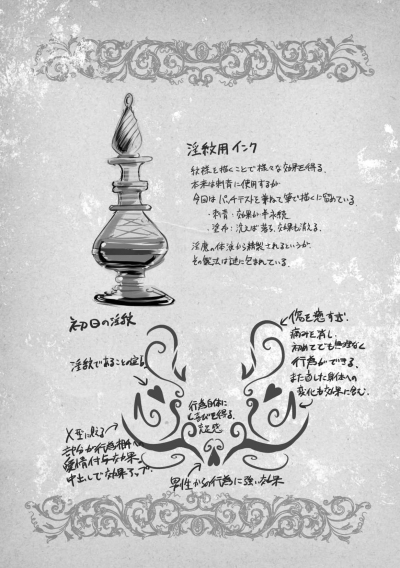 淫紋用インク
紋様を描くことで様々な効果を得る。
本来は刺青に使用するが
今回はパッチテストを兼ねて筆で描くに留めている。
・刺青：効果が半永続
・塗布：洗えば落ち、効果も消える。
淫魔の体液から精製されるというが
その製法は謎に包まれている。
初日の淫紋
淫紋であることの証
行為自体に
よろこびを得る
充足感
痛みを消し
初めてでも無理なく
行為ができる。
また
変化も効果に含む。
X型に見える
愛情付与効果
中出しで効果アップ
男性からの行為に強い効果